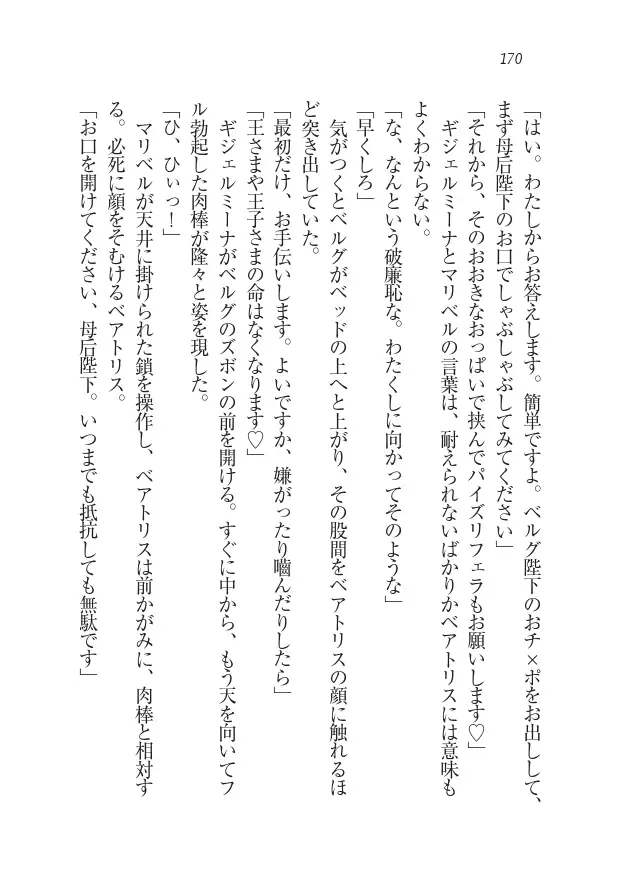 170
「はい。わたしからお答えします。簡単ですよ。ベルグ陛下のおチ×ポをお出しして、
まず母后陛下のお口でしゃぶしゃぶしてみてください」
「それから、そのおおきなおっぱいで挟んでパイズリフェラもお願いします♡」
ギジェルミーナとマリベルの言葉は、耐えられないばかりかベアトリスには意味も
よくわからない。
「な、なんという破廉恥な。わたくしに向かってそのような」
「早くしろ」
気がつくとベルグがベッドの上へと上がり、その股間をベアトリスの顔に触れるほ
ど突き出していた。
「最初だけ、お手伝いします。よいですか、嫌がったり嚙んだりしたら」
「王さまや王子さまの命はなくなります♡」
ギジェルミーナがベルグのズボンの前を開ける。すぐに中から、もう天を向いてフ
ル勃起した肉棒が隆々と姿を現した。
「ひ、ひぃっ！」
マリベルが天井に掛けられた鎖を操作し、ベアトリスは前かがみに、肉棒と相対す
る。必死に顔をそむけるベアトリス。
「お口を開けてください、母后陛下。いつまでも抵抗しても無駄です」